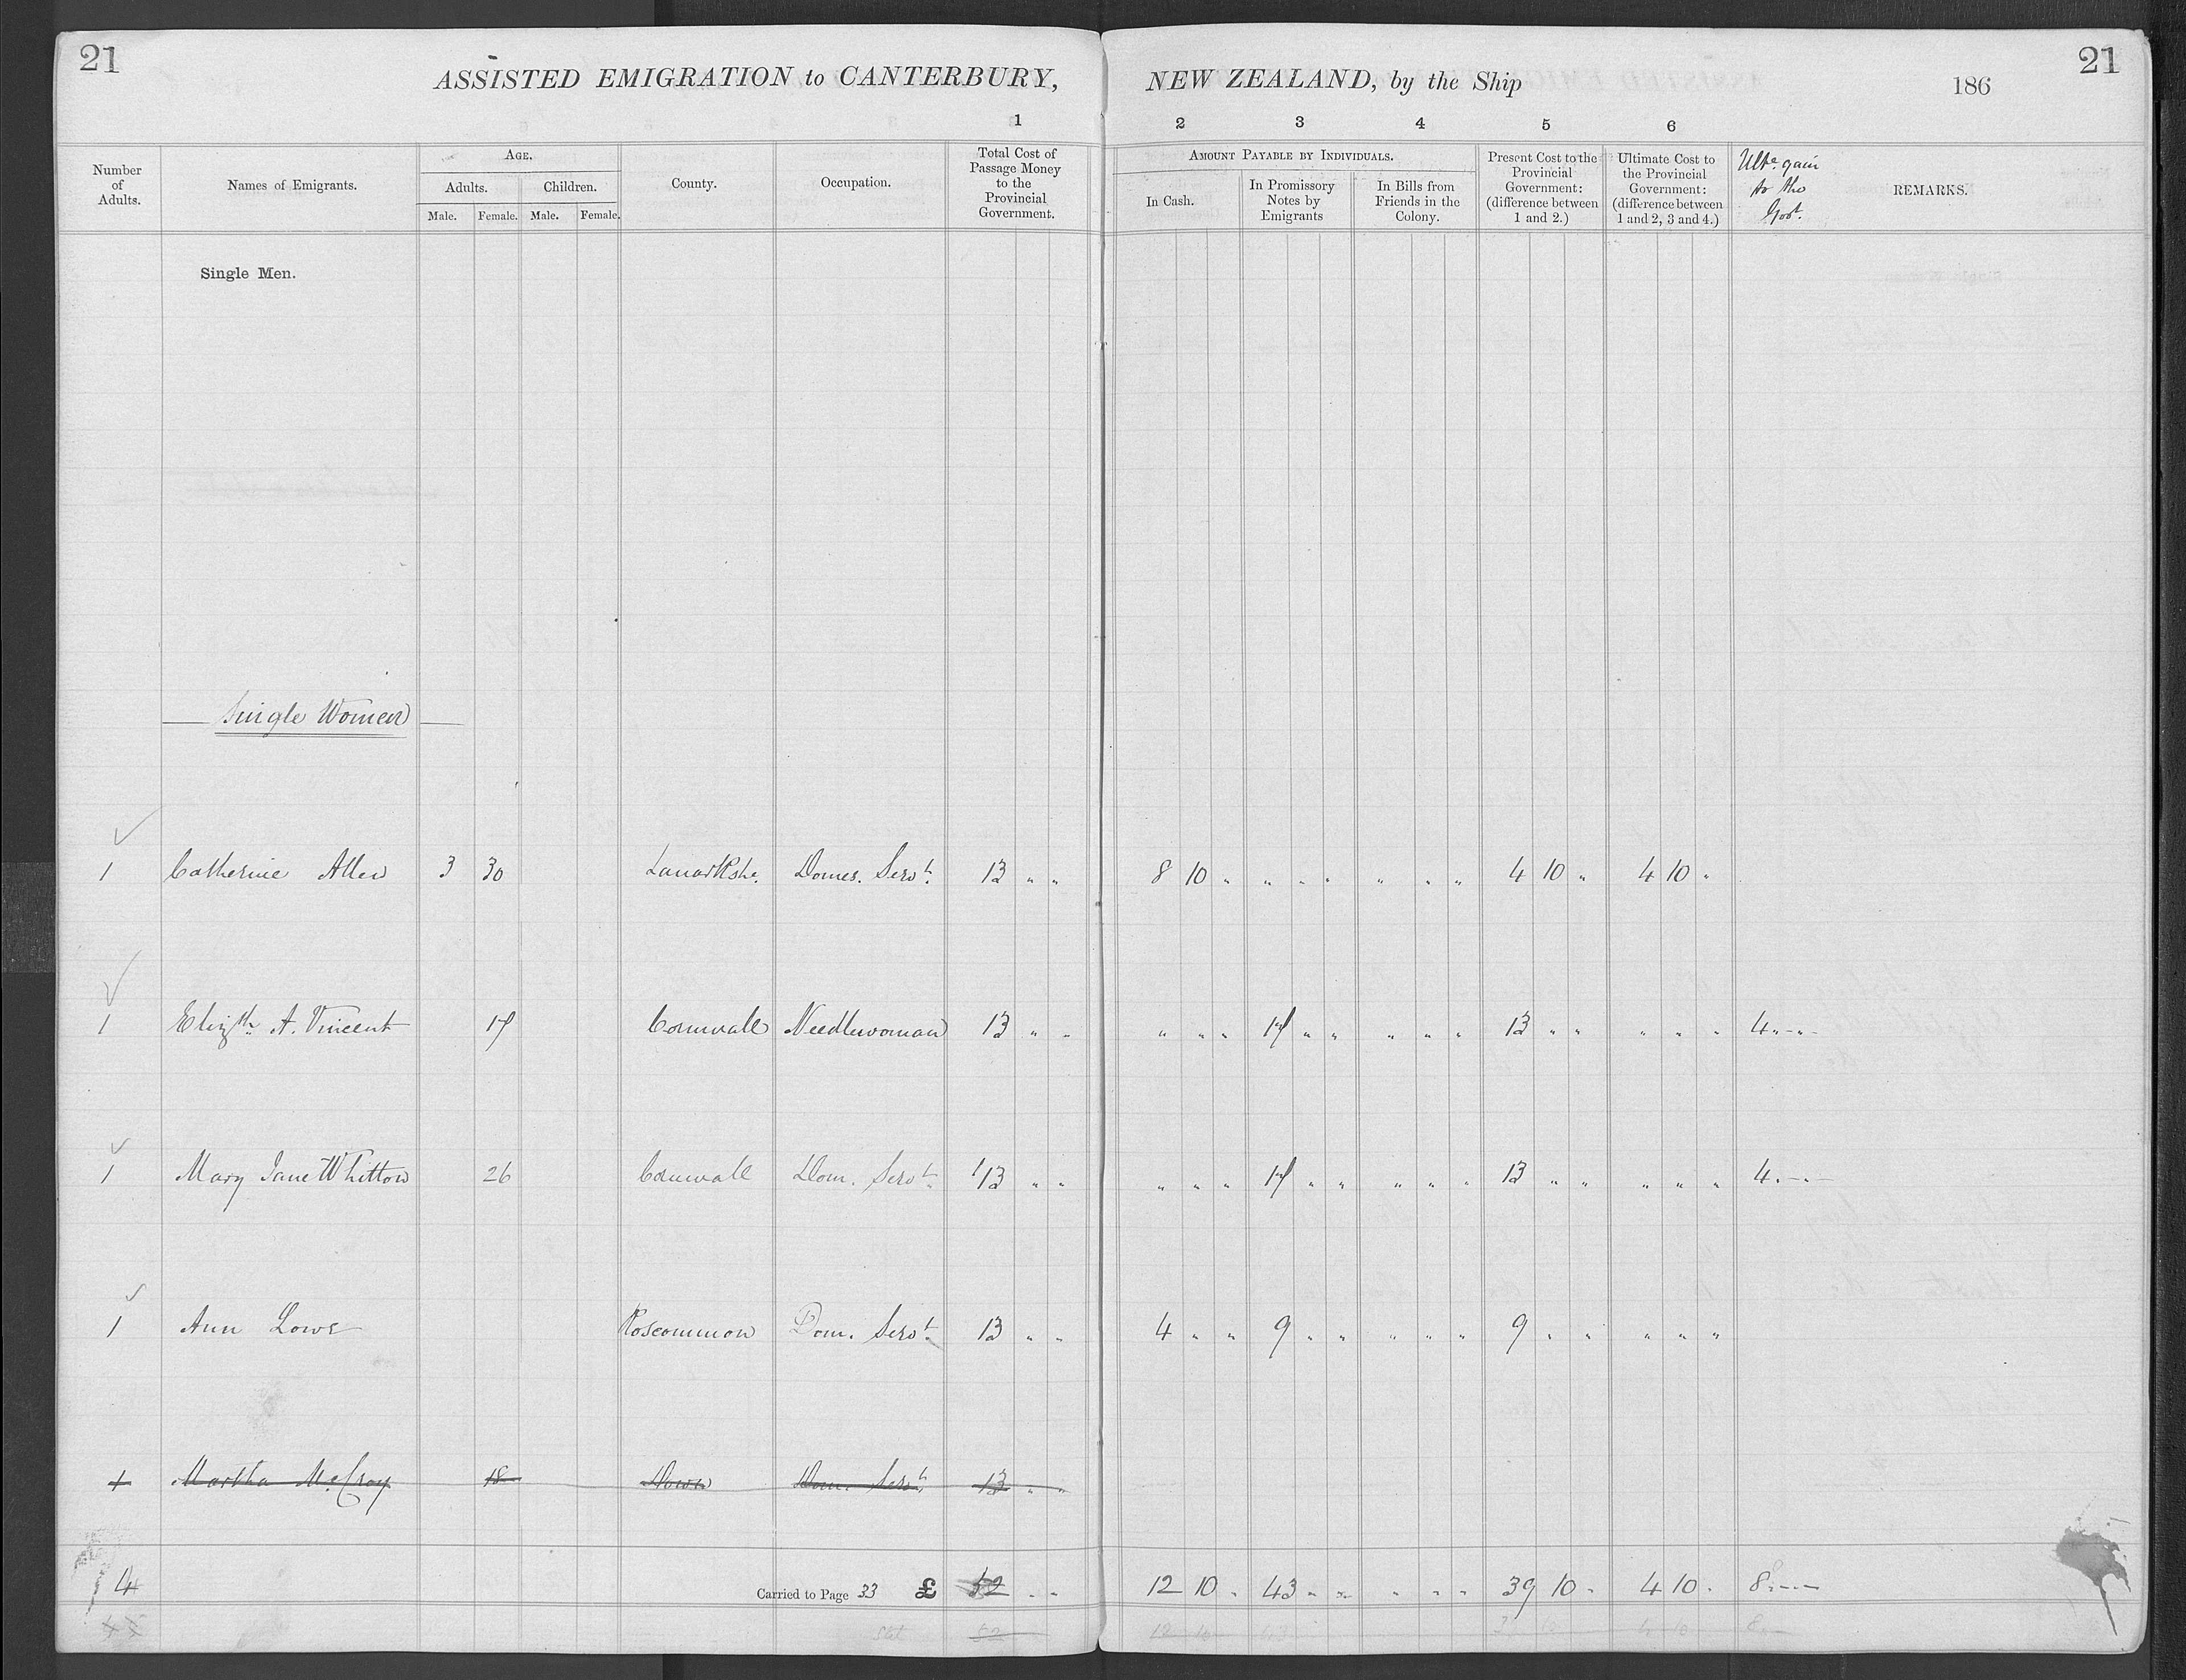 21
ASSISTED EMIGRATION to CANTERBURY, NEW ZEALAND, by the Ship 186
21
1 2 3 4 5 6
Number of Adults.
Names of Emigrants.
AGE.
Adults. Children.
Male. Female. Male. Female.
County.
Occupation.
Total Cost of Passage Money to the Provincial Government.
AMOUNT PAYABLE BY INDIVIDUALS.
In Cash.
In Promissory Notes by Emigrants
In Bills from Friends in the Colony.
Present Cost to the Provincial Government: (difference between 1 and 2.)
Ultimate Cost to the Provincial Government: (difference between 1 and 2, 3 and 4.)
Ulte. gain to the Govt.
REMARKS.
Single Men.
Single Women
1 Catherine Allen 3 30 Lanarkshe. Domes. Servt. 13 " " 8 10 " " " " " " " 4 10 " 4 10 "
1 Elizth. A. Vincent 17 Cornwall Needlewoman 13 " " " " " 17 " " " " " 13 " " " " " 4 " - " -
1 Mary Jane Whitton 26 Cornwall Dom. Servt. 13 " " " " " 17 " " " " " 13 " " " " " 4 . - . -
1 Ann Lowe Roscommon Dom. Servt. 13 " " 4 " " 9 " " " " " 9 " " " " "
1 Martha McCroy 18 Down Dom. Servt. 13 " "
4 Carried to Page 33 £ 52 - - 12 10 " 43 " " " " " 39 10 " 4 10 " 8 . - . -
52 12 10 43 4 10 8